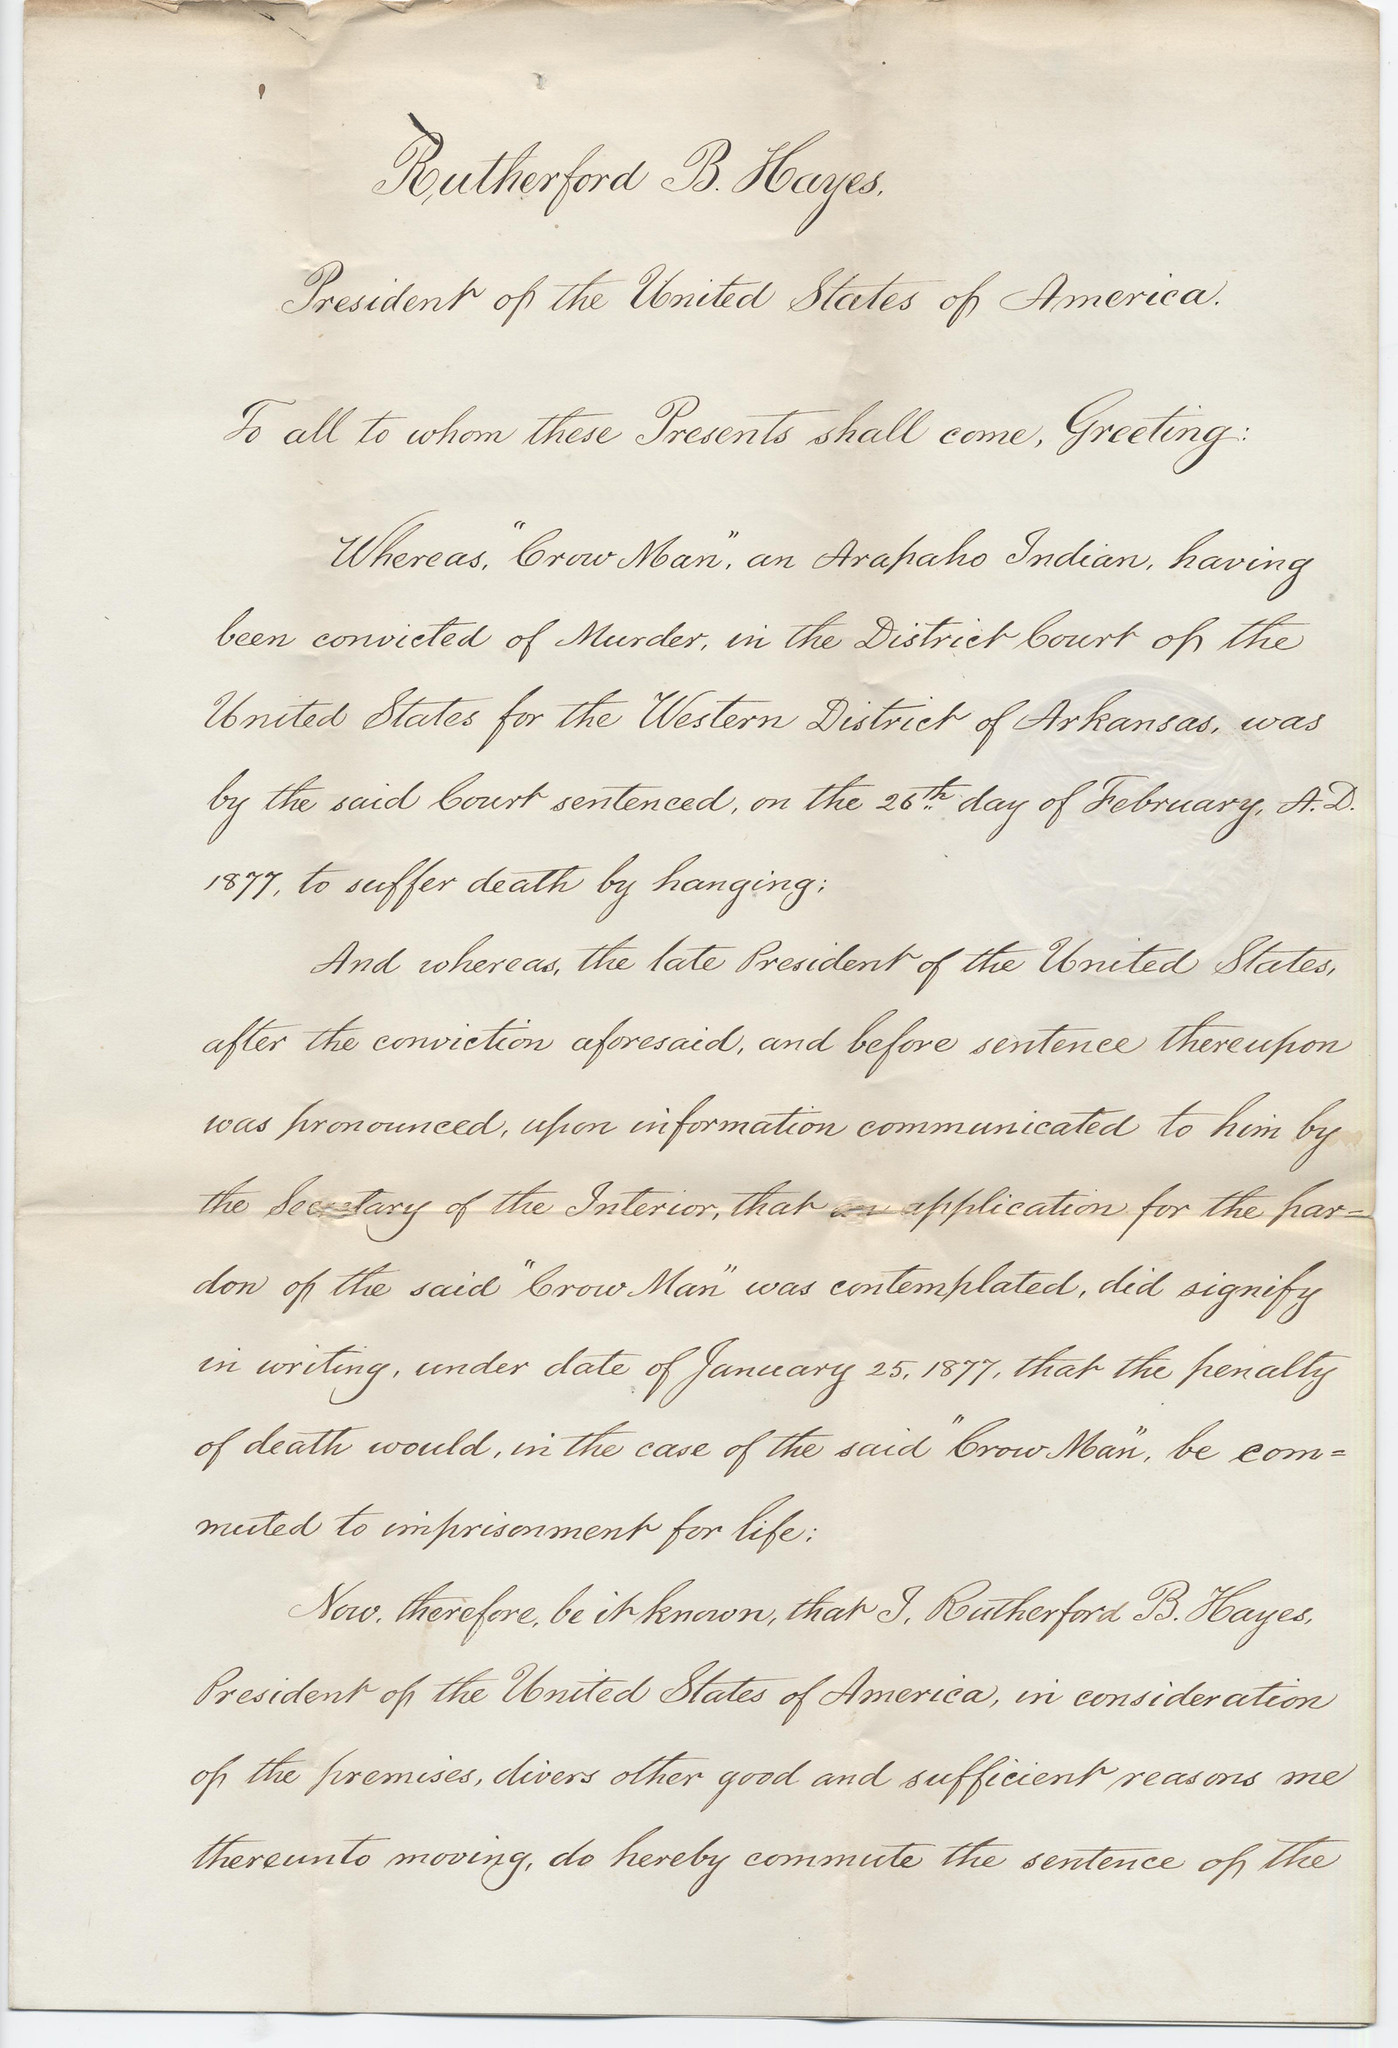 Rutherford B. Hayes,
President of the United States of America.
To all to whom these Presents shall come, Greeting:
Whereas, "Crow Man", an Arapaho Indian, having
been convicted of Murder, in the District Court of the
United States for the Western District of Arkansas, was
by the said Court sentenced, on the 26th day of February, A.D.
1877, to suffer death by hanging;
And whereas, the late President of the United States,
after the conviction aforesaid, and before sentence thereupon
was pronounced, upon information communicated to him by
the Secretary of the Interior, that an application for the par=
don of the said "Crow Man" was contemplated, did signify
in writing, under date of January 25, 1877, that the penalty
of death would, in the case of the said "Crow Man", be com=
muted to imprisonment for life;
Now, therefore, be it known, that I, Rutherford B. Hayes,
President of the United States of America, in consideration
of the premises, divers other good and sufficient reasons me
thereunto moving, do hereby commute the sentence of the